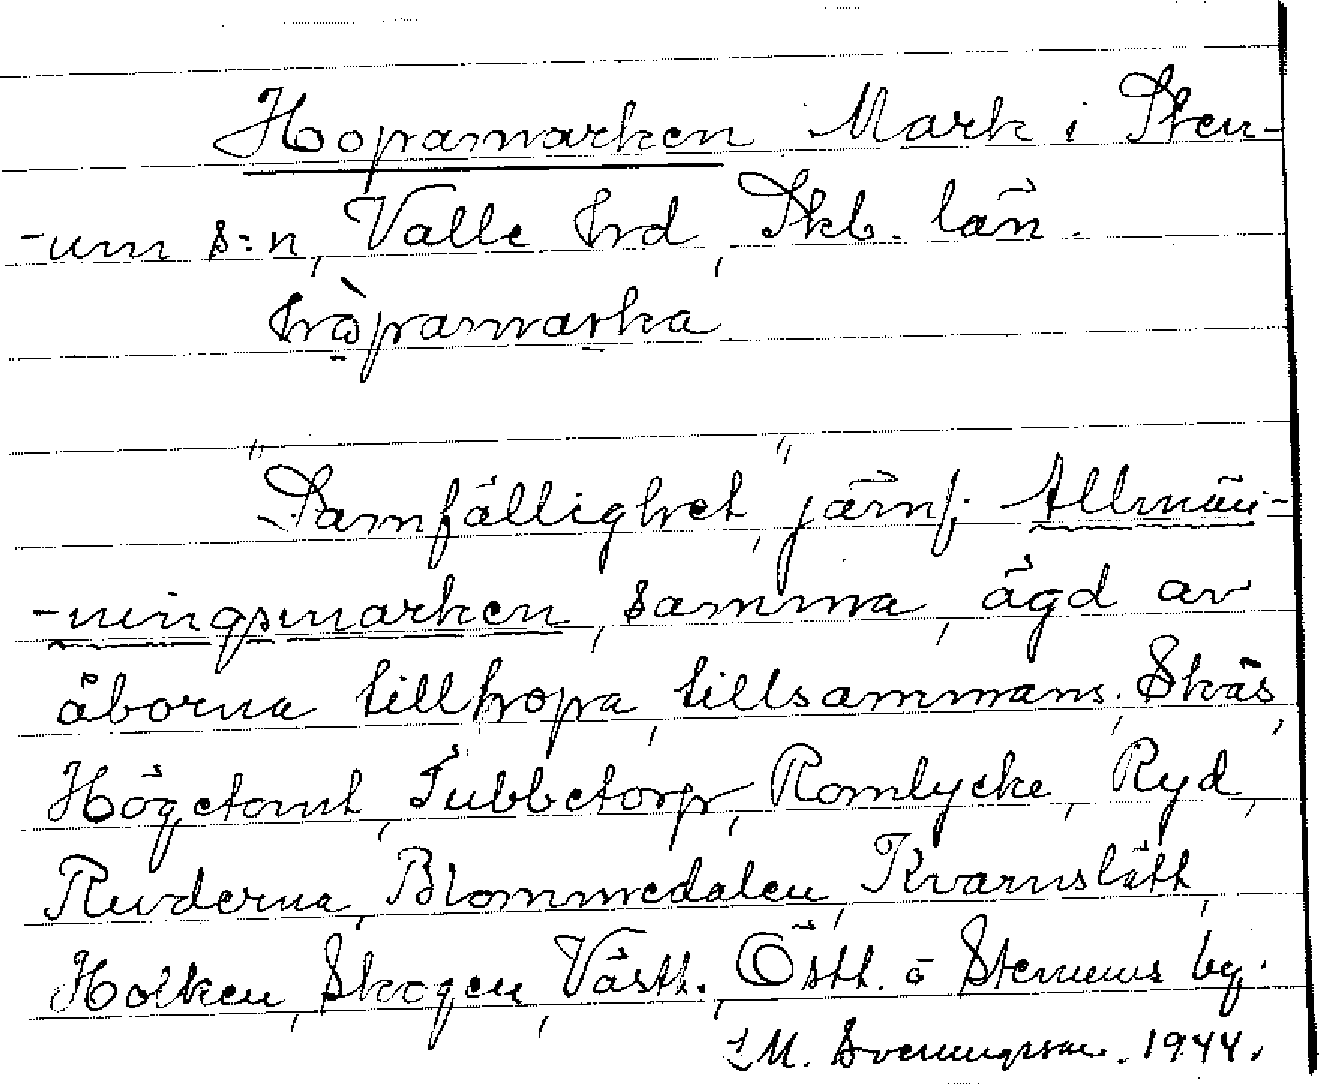 Hopamarken Mark i Sten-
-um s:n, Valle hrd, Skb. län.
hòpamarka
"Samfällighet", jämf. Allmän-
-ningsmarken, samma, ägd av
åborna tillhopa, tillsammans, Skås,
Högetomt, Tubbetorp, Romlycke, Ryd,
Ruderna, Blommedalen, Kvarnslätt,
Holken, Skogen, Västt., Östt. o Stenums by.
I M. Sveningsson. 1944.